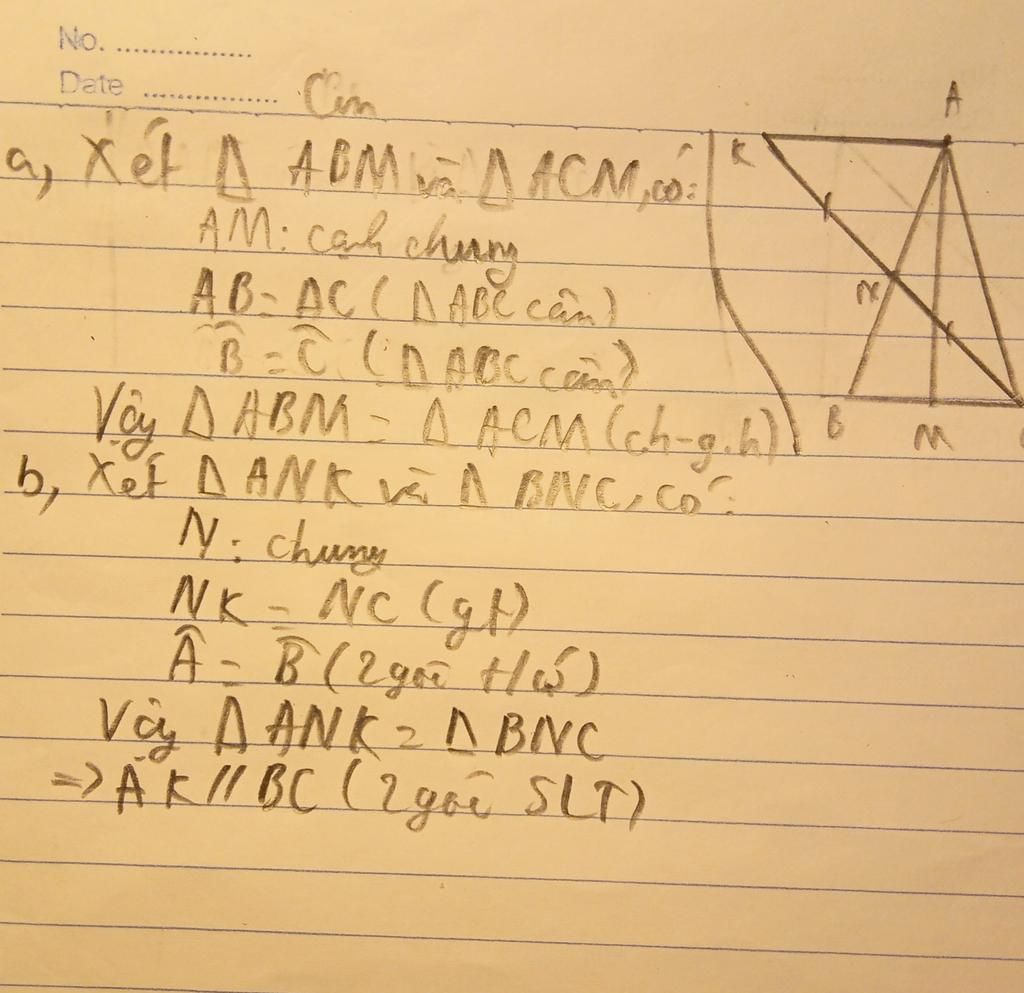 No. ................
Date ................
a, Xét Δ ABM và Δ ACM, có:
AM: cạnh chung
AB = AC (Δ ABC cân)
B̂ = Ĉ (Δ ABC cân)
Vậy Δ ABM = Δ ACM (ch-g.h)
b, Xét Δ ANK và Δ BNC, có:
N: chung
NK = NC (gt)
Â = B̂ (2 góc t/ứ)
Vậy Δ ANK = Δ BNC
=> AK // BC (2 góc SLT)
A
K
N
B
M